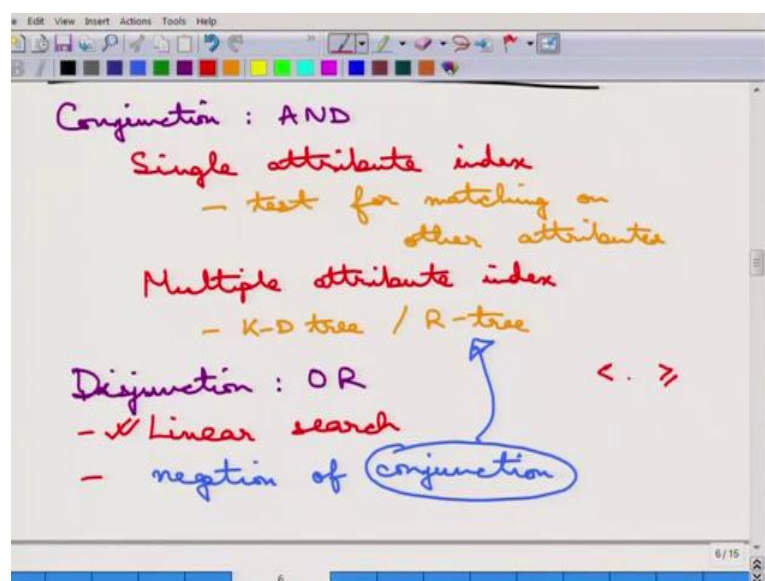 Edit View Insert Actions Tools Help
Conjunction : AND
Single attribute index
- test for matching on
other attributes
Multiple attribute index
- K-D tree / R-tree
Disjunction : OR
< . >
- Linear search
- negation of conjunction
6/15
6